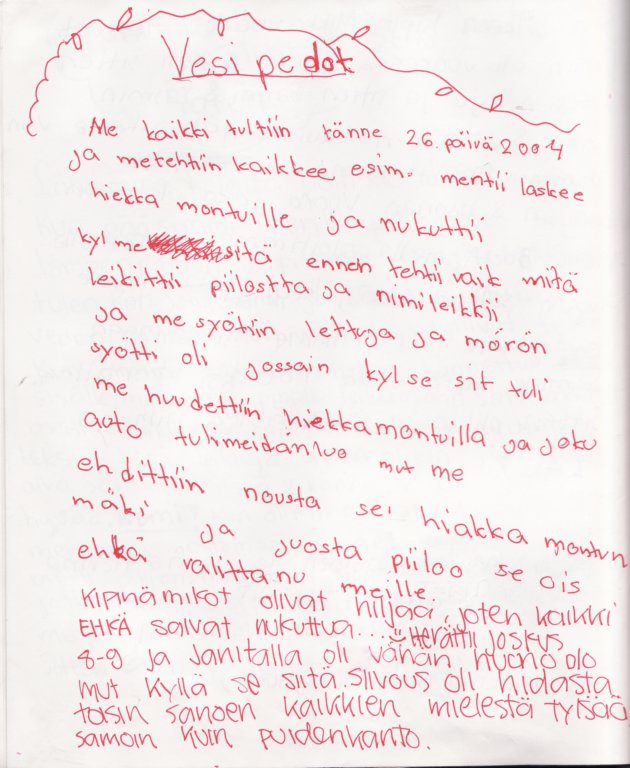 Vesipedot
Me kaikki tultiin tänne 26. päivä 2004
ja metehtiin kaikkee esim. mentii laskee
hiekka montuille ja nukuttii
kyl me sitä ennen tehtii vaik mitä
leikittii piilostta ja nimileikkii
ja me syötiin lettuja ja mörön
syötti oli jossain kyl se sit tuli
me huudettiin hiekkamontuilla ja joku
auto tulimeidänluo mut me
ehdittiin nousta sei hiakka montun
mäki ja juosta piiloo se ois
ehkä valittanu meille.
Kipinämikot olivat hiljaa, joten kaikki
EHKÄ saivat nukuttua... Herättii joskus
8-9 ja Janitalla oli vähän huono olo
mut kyllä se siitä. Siivous oli hidasta
toisin sanoen kaikkien mielestä tylsää
samoin kuin puidenkanto.